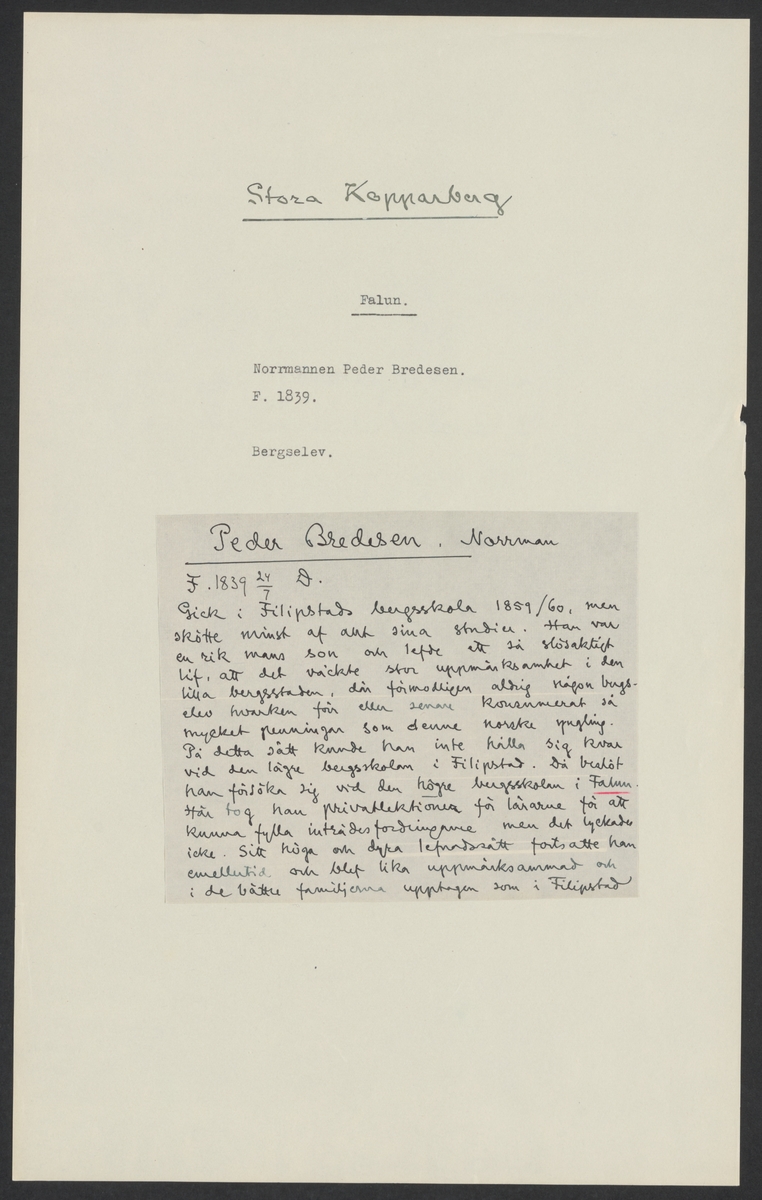 Stora Kopparberg
Falun.
Norrmannen Peder Bredesen.
F. 1839.
Bergselev.
Peder Bredesen. Norrman
F. 1839 24/7 D.
Gick i Filipstads bergsskola 1859/60, men
skötte minst af allt sina studier. Han var
en rik mans son och lefde ett så slösaktigt
lif, att det väckte stor uppmärksamhet i den
lilla bergsstaden, där förmodligen aldrig någon bergs-
elev hvarken förr eller senare konsumerat så
mycket penningar som denne norske yngling.
På detta sätt kunde han inte hålla sig kvar
vid den lägre bergsskolan i Filipstad. Då beslöt
han försöka sig vid den högre bergsskolan i Falun.
Här tog han privatlektioner för lärarne för att
kunna fylla inträdesfordringarne men det lyckades
icke. Sitt höga och dyra lefnadssätt fortsatte han
emellertid och blef lika uppmärksammad och
i de bättre familjerna upptagen som i Filipstad